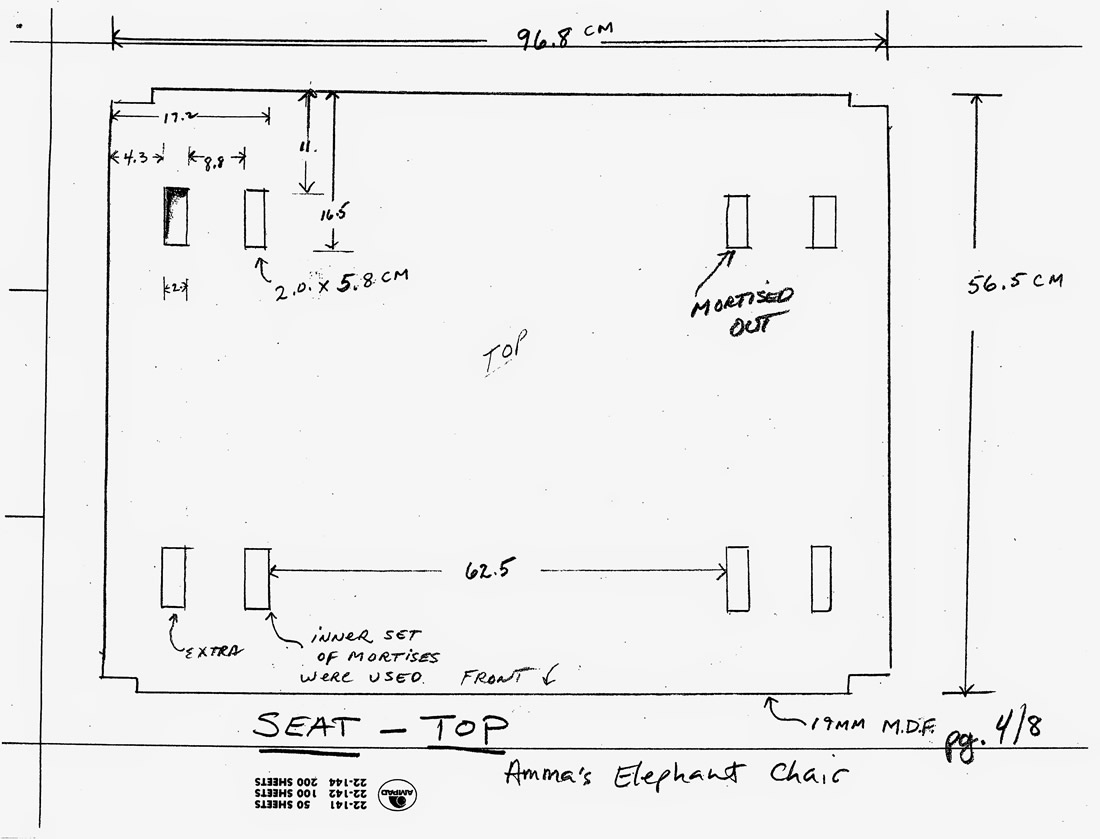 96.8 CM
17.2
4.3
8.8
11.
16.5
2
2.0. x 5.8 CM
MORTISED
OUT
56.5 CM
TOP
62.5
EXTRA
INNER SET
OF MORTISES
WERE USED.
FRONT
19MM M.D.F.
SEAT - TOP
pg. 4/8
Amma's Elephant Chair
22-141 50 SHEETS
22-142 100 SHEETS
22-144 200 SHEETS
AMPAD